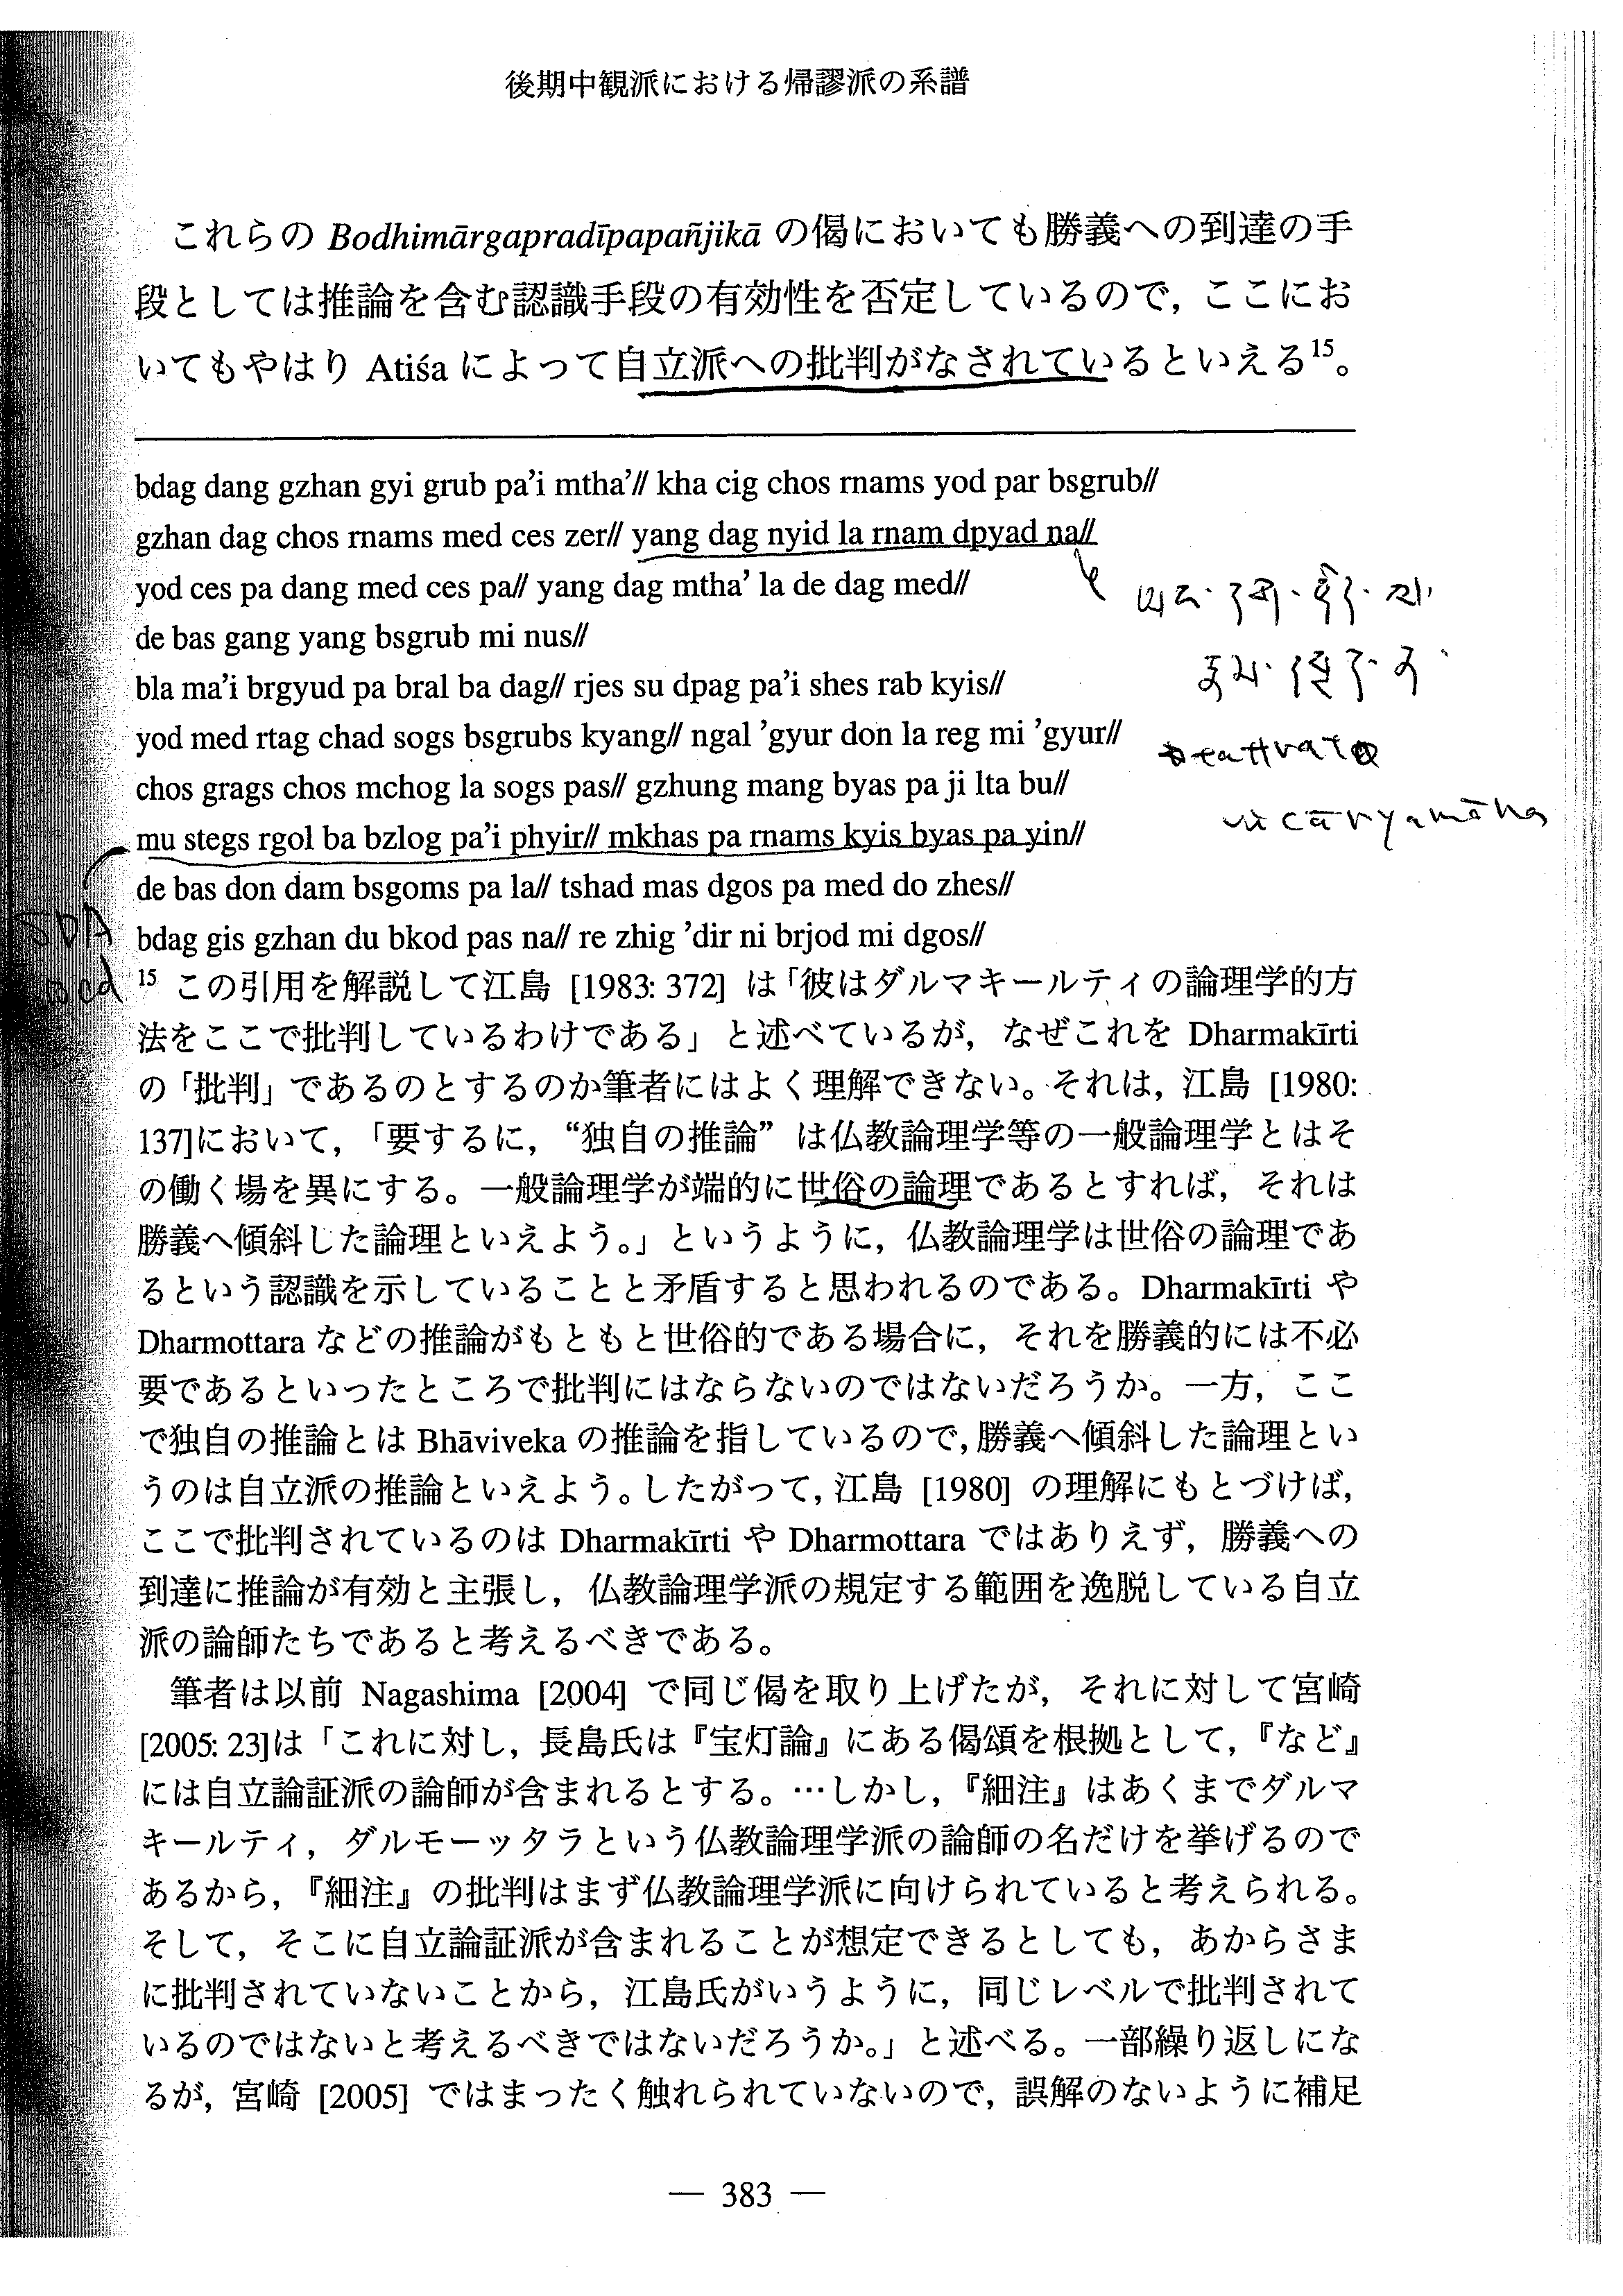 後期中観派における帰謬派の系譜
これらの Bodhimārgapradīpapañjikā の偈においても勝義への到達の手
段としては推論を含む認識手段の有効性を否定しているので，ここにお
いてもやはり Atiśa によって自立派への批判がなされているといえる15。
bdag dang gzhan gyi grub pa’i mtha’// kha cig chos rnams yod par bsgrub//
gzhan dag chos rnams med ces zer// yang dag nyid la rnam dpyad na//
yod ces pa dang med ces pa// yang dag mtha’ la de dag med//
de bas gang yang bsgrub mi nus//
bla ma’i brgyud pa bral ba dag// rjes su dpag pa’i shes rab kyis//
yod med rtag chad sogs bsgrubs kyang// ngal ’gyur don la reg mi ’gyur//
chos grags chos mchog la sogs pas// gzhung mang byas pa ji lta bu//
mu stegs rgol ba bzlog pa’i phyir// mkhas pa rnams kyis byas pa yin//
de bas don dam bsgoms pa la// tshad mas dgos pa med do zhes//
bdag gis gzhan du bkod pas na// re zhig ’dir ni brjod mi dgos//
ཡང་དག་ཉིད་ལ་
རྣམ་དཔྱད་ན་
tattvato
vicāryamāṇa
SDA
Bcd
15 この引用を解説して江島 [1983: 372] は「彼はダルマキールティの論理学的方
法をここで批判しているわけである」と述べているが，なぜこれを Dharmakīrti
の「批判」であるのとするのか筆者にはよく理解できない。それは，江島 [1980:
137]において，「要するに，“独自の推論” は仏教論理学等の一般論理学とはそ
の働く場を異にする。一般論理学が端的に世俗の論理であるとすれば，それは
勝義へ傾斜した論理といえよう。」というように，仏教論理学は世俗の論理であ
るという認識を示していることと矛盾すると思われるのである。Dharmakīrti や
Dharmottara などの推論がもともと世俗的である場合に，それを勝義的には不必
要であるといったところで批判にはならないのではないだろうか。一方，ここ
で独自の推論とは Bhāviveka の推論を指しているので，勝義へ傾斜した論理とい
うのは自立派の推論といえよう。したがって，江島 [1980] の理解にもとづけば，
ここで批判されているのは Dharmakīrti や Dharmottara ではありえず，勝義への
到達に推論が有効と主張し，仏教論理学派の規定する範囲を逸脱している自立
派の論師たちであると考えるべきである。
筆者は以前 Nagashima [2004] で同じ偈を取り上げたが，それに対して宮崎
[2005: 23]は「これに対し，長島氏は『宝灯論』にある偈頌を根拠として，『など』
には自立論証派の論師が含まれるとする。…しかし，『細注』はあくまでダルマ
キールティ，ダルモーッタラという仏教論理学派の論師の名だけを挙げるので
あるから，『細注』の批判はまず仏教論理学派に向けられていると考えられる。
そして，そこに自立論証派が含まれることが想定できるとしても，あからさま
に批判されていないことから，江島氏がいうように，同じレベルで批判されて
いるのではないと考えるべきではないだろうか。」と述べる。一部繰り返しにな
るが，宮崎 [2005] ではまったく触れられていないので，誤解のないように補足
— 383 —